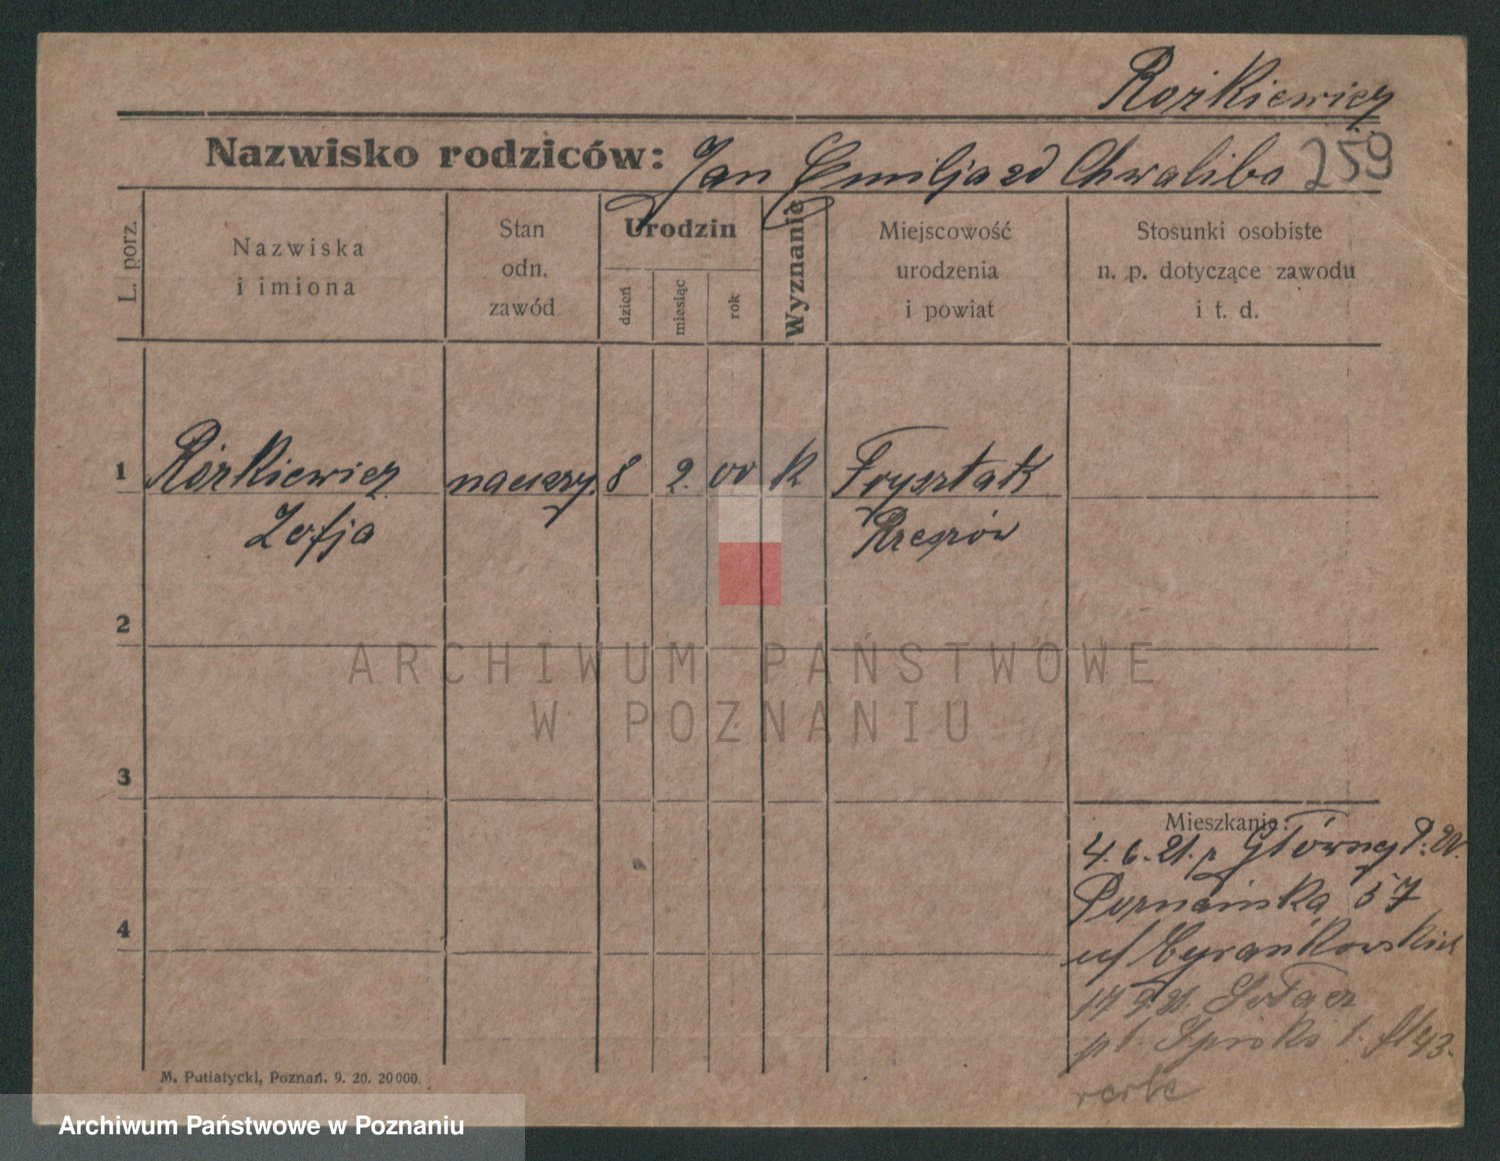 Rożkiewicz
Nazwisko rodziców: Jan Emilja zd Chwaliba 259
L. porz.
Nazwiska
i imiona
Stan
odn.
zawód
Urodzin
dzień
miesiąc
rok
Wyznanie
Miejscowość
urodzenia
i powiat
Stosunki osobiste
n. p. dotyczące zawodu
i t. d.
1 Rożkiewicz nauczy. 8 2. 00 k Frysztak
Zofja Rzeszów
2
3
4
ARCHIWUM PAŃSTWOWE
W POZNANIU
Mieszkanie:
4. 6. 21. z Główny P.
Poznańska 57
u/ Cyrankowskich
17 9 21. Sołacz
pl. Spiski 1.
M. Putiatycki, Poznań. 9. 20. 20000.
Archiwum Państwowe w Poznaniu